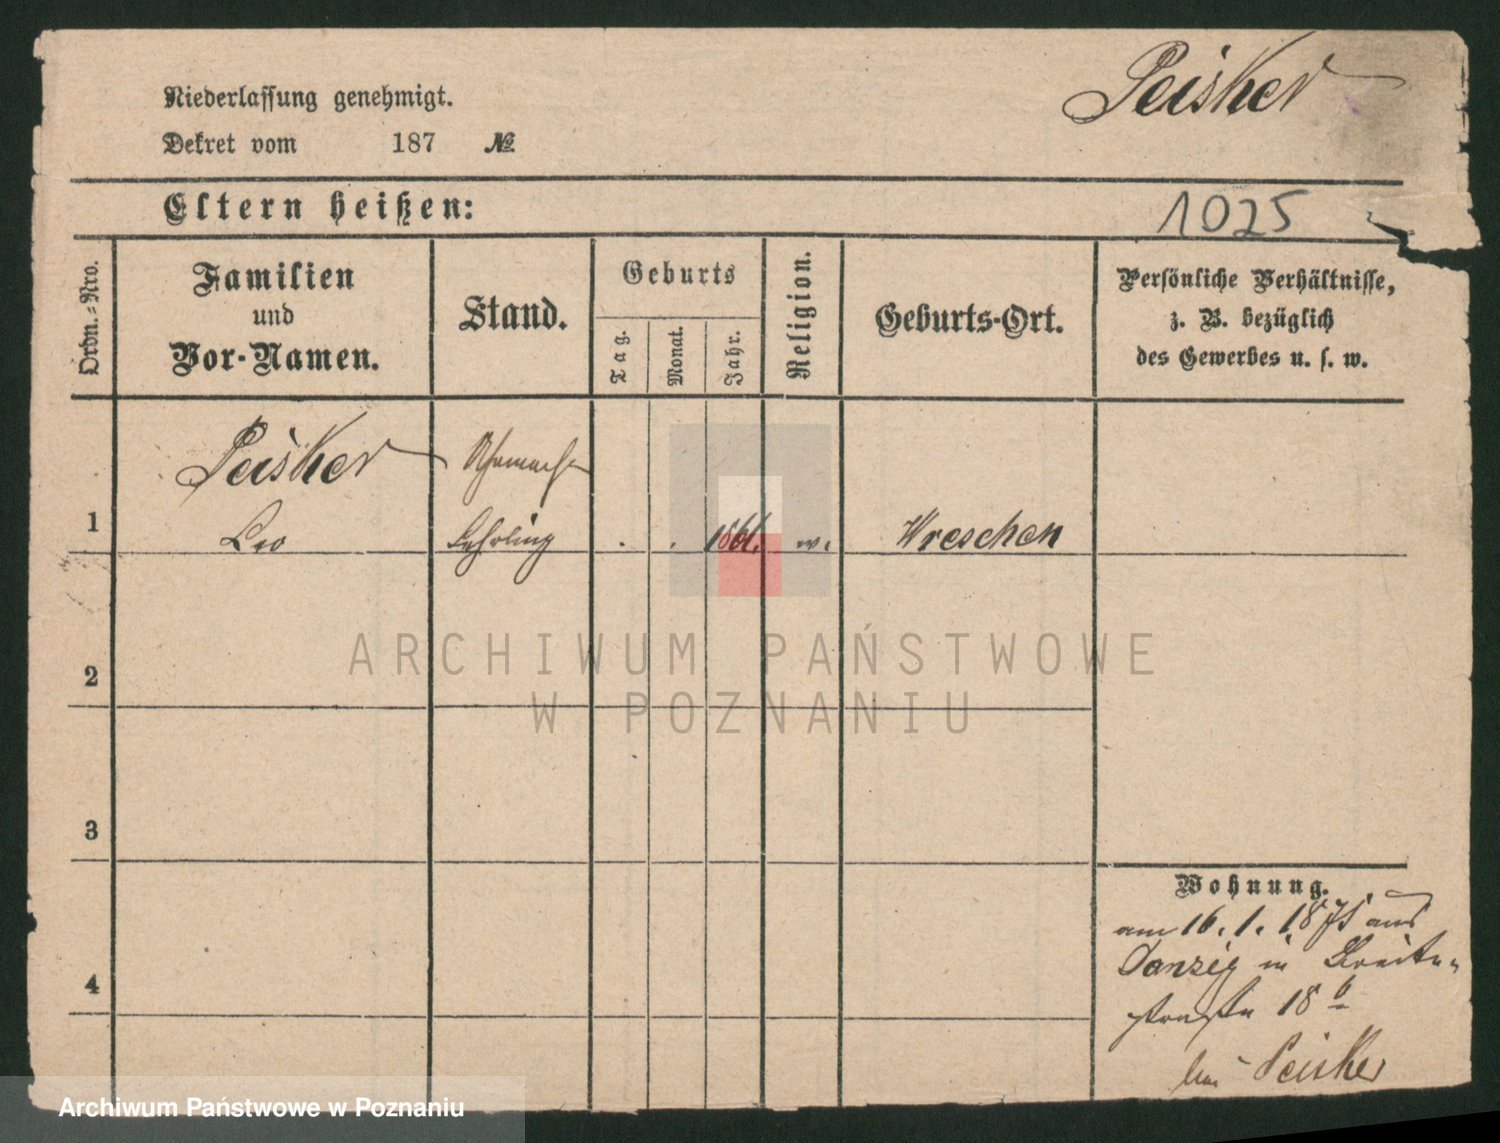 Peisker
Niederlassung genehmigt.
Dekret vom 187 №
Eltern heißen:
1025
Ordn.-Nro.
Familien
und
Vor-Namen.
Stand.
Geburts
Tag.
Monat.
Jahr.
Religion.
Geburts-Ort.
Persönliche Verhältnisse,
z. B. bezüglich
des Gewerbes u. s. w.
Peisker
1 Leo Lehrling . . 1861. w. Wreschen
2
3
4
Wohnung.
am 16. 1. 1875 aus
Danzig in Breite-
straße 18 b
bei Peisker
ARCHIWUM PAŃSTWOWE
W POZNANIU
Archiwum Państwowe w Poznaniu